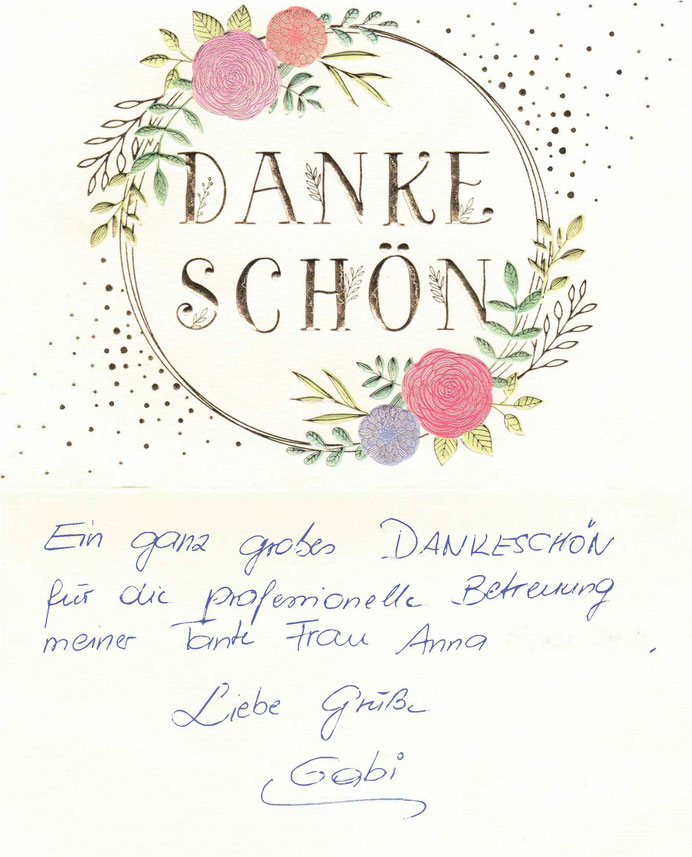 DANKE
SCHÖN
Ein ganz großes DANKESCHÖN
für die professionelle Betreuung
meiner Tante Frau Anna .
Liebe Grüße
Gabi